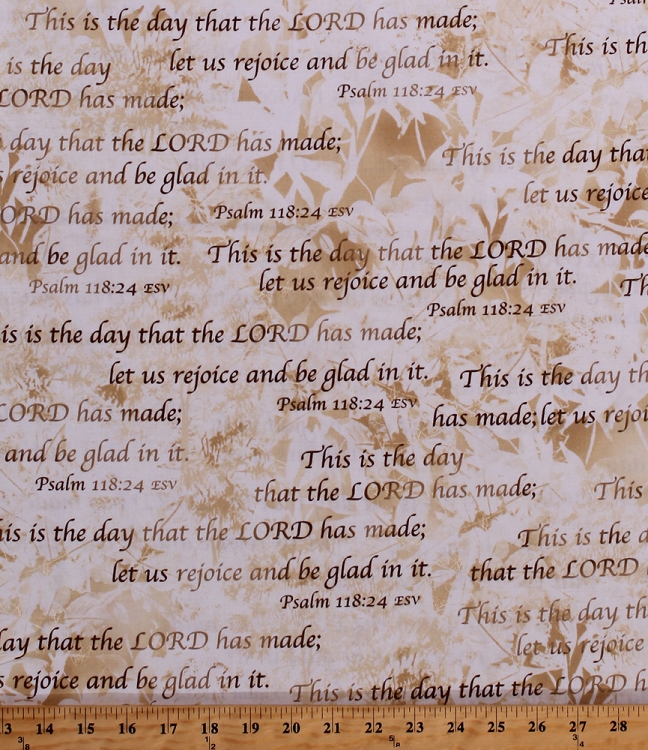 Psalm
This is the day that the LORD has made;
let us rejoice and be glad in it.
This is th
is the day
Psalm 118:24 ESV
LORD has made;
day that the LORD has made;
This is the day that
rejoice and be glad in it.
let us rejoice
ORD has made;
Psalm 118:24 ESV
and be glad in it.
This is the day that the LORD has made
let us rejoice and be glad in it.
Th
Psalm 118:24 ESV
Psalm 118:24 ESV
is is the day that the LORD has made;
let us rejoice and be glad in it.
This is the day th
Psalm 118:24 ESV
LORD has made;
has made; let us rejoi
and be glad in it.
This is the day
Psalm 118:24 ESV
that the LORD has made;
This
is is the day that the LORD has made;
This is the d
let us rejoice and be glad in it.
that the LORD
Psalm 118:24 ESV
This is the day th
day that the LORD has made;
let us rejoice
s rejoice and be glad in it.
This is the day that the LORD h
13 14 15 16 17 18 19 20 21 22 23 24 25 26 27 28
3/8 1/2 5/8 3/4